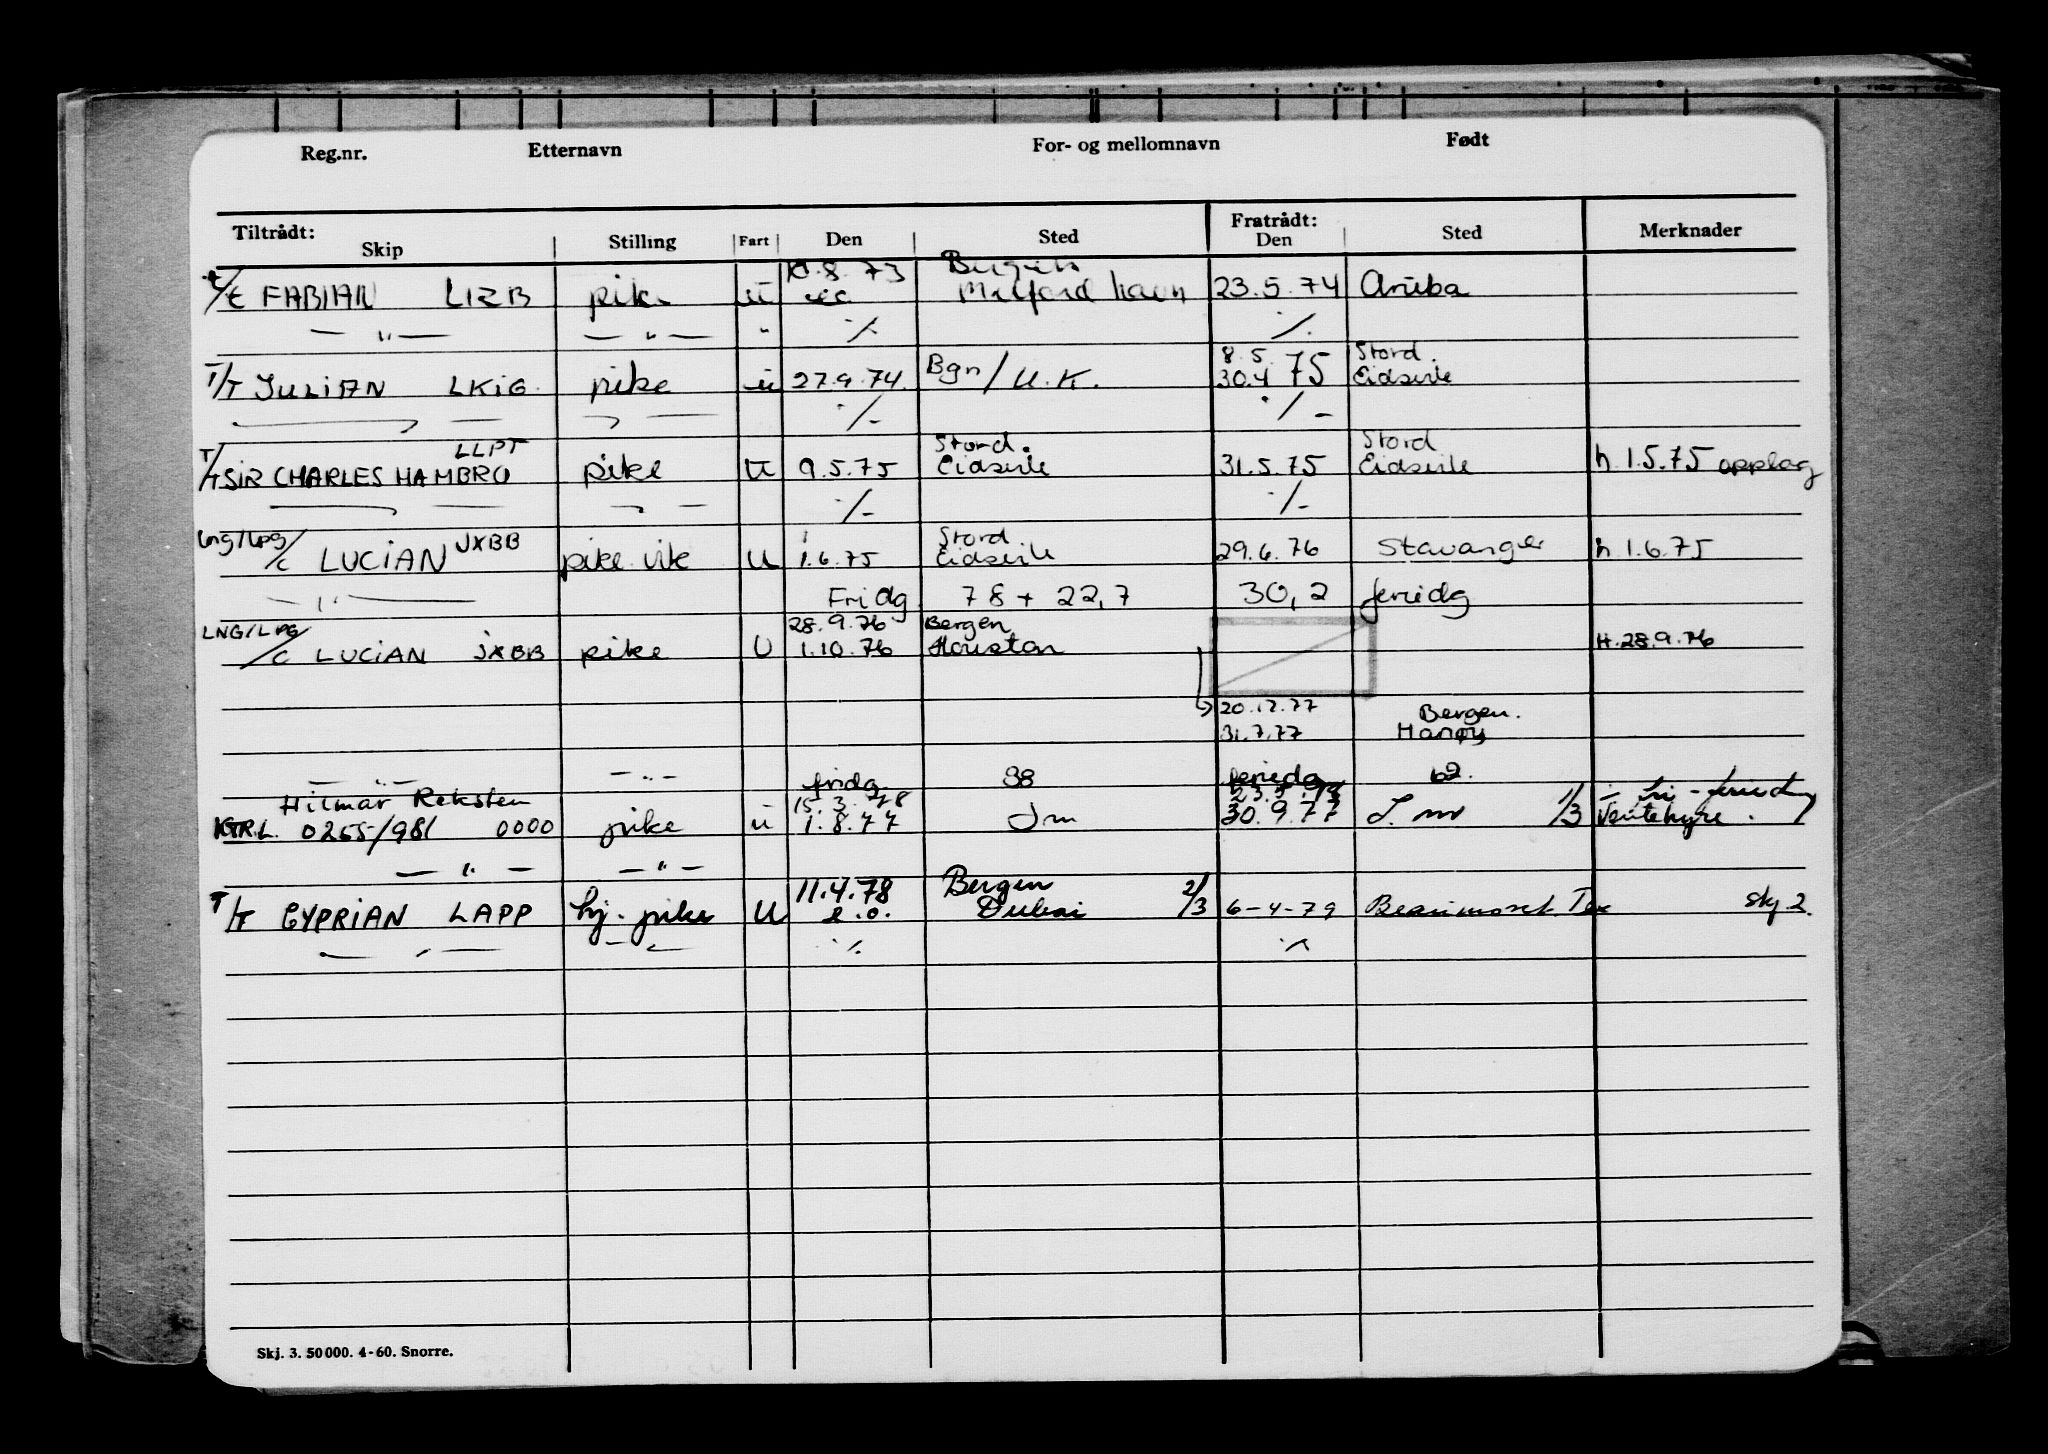 Reg.nr. Etternavn For- og mellomnavn Født
Tiltrådt: Skip Stilling Fart Den Sted Fratrådt: Den Sted Merknader
8.73 Bergen
FABIAN LIZB pike u Milford haven 23.5.74 Aruba
— " — — " — " ·/· ·/·
8.5. Stord.
T/T JULIAN LKIG pike u 27.9.74. Bgn / U.K. 30.4 75 Eidsvik
·/- ·/-
LLPT Stord. Stord
T/T SIR CHARLES HAMBRO pike U 9.5.75 Eidsvik 31.5.75 Eidsvik h. 1.5.75 opplag
·/- ·/-
Stord
LNG/LPG/C LUCIAN JXBB pike vik U 1.6.75 Eidsvik 29.6.76 Stavanger h. 1.6.75
— " — Fridg 78 + 22,7 30,2 feriedg
28.9.76 Bergen
LNG/LPG/C LUCIAN JXBB pike U 1.10.76 Houston H. 28.9.76
20.12.77 Bergen.
31.7.77
— " — — " — fridg 38 feriedg 62.
Hilmar Reksten 15.3.78
KTR.L. 0255/981 0000 pike u 1.8.77 30.9.77 1/3 Ventehyre.
— " — — " —
11.4.78 Bergen
T/T CYPRIAN LAPP hj. pike U e.o. Dubai 2/3 6-4-79 Beaumont Tex Skj 2.
·/· ·/·
Skj. 3. 50 000. 4-60. Snorre.